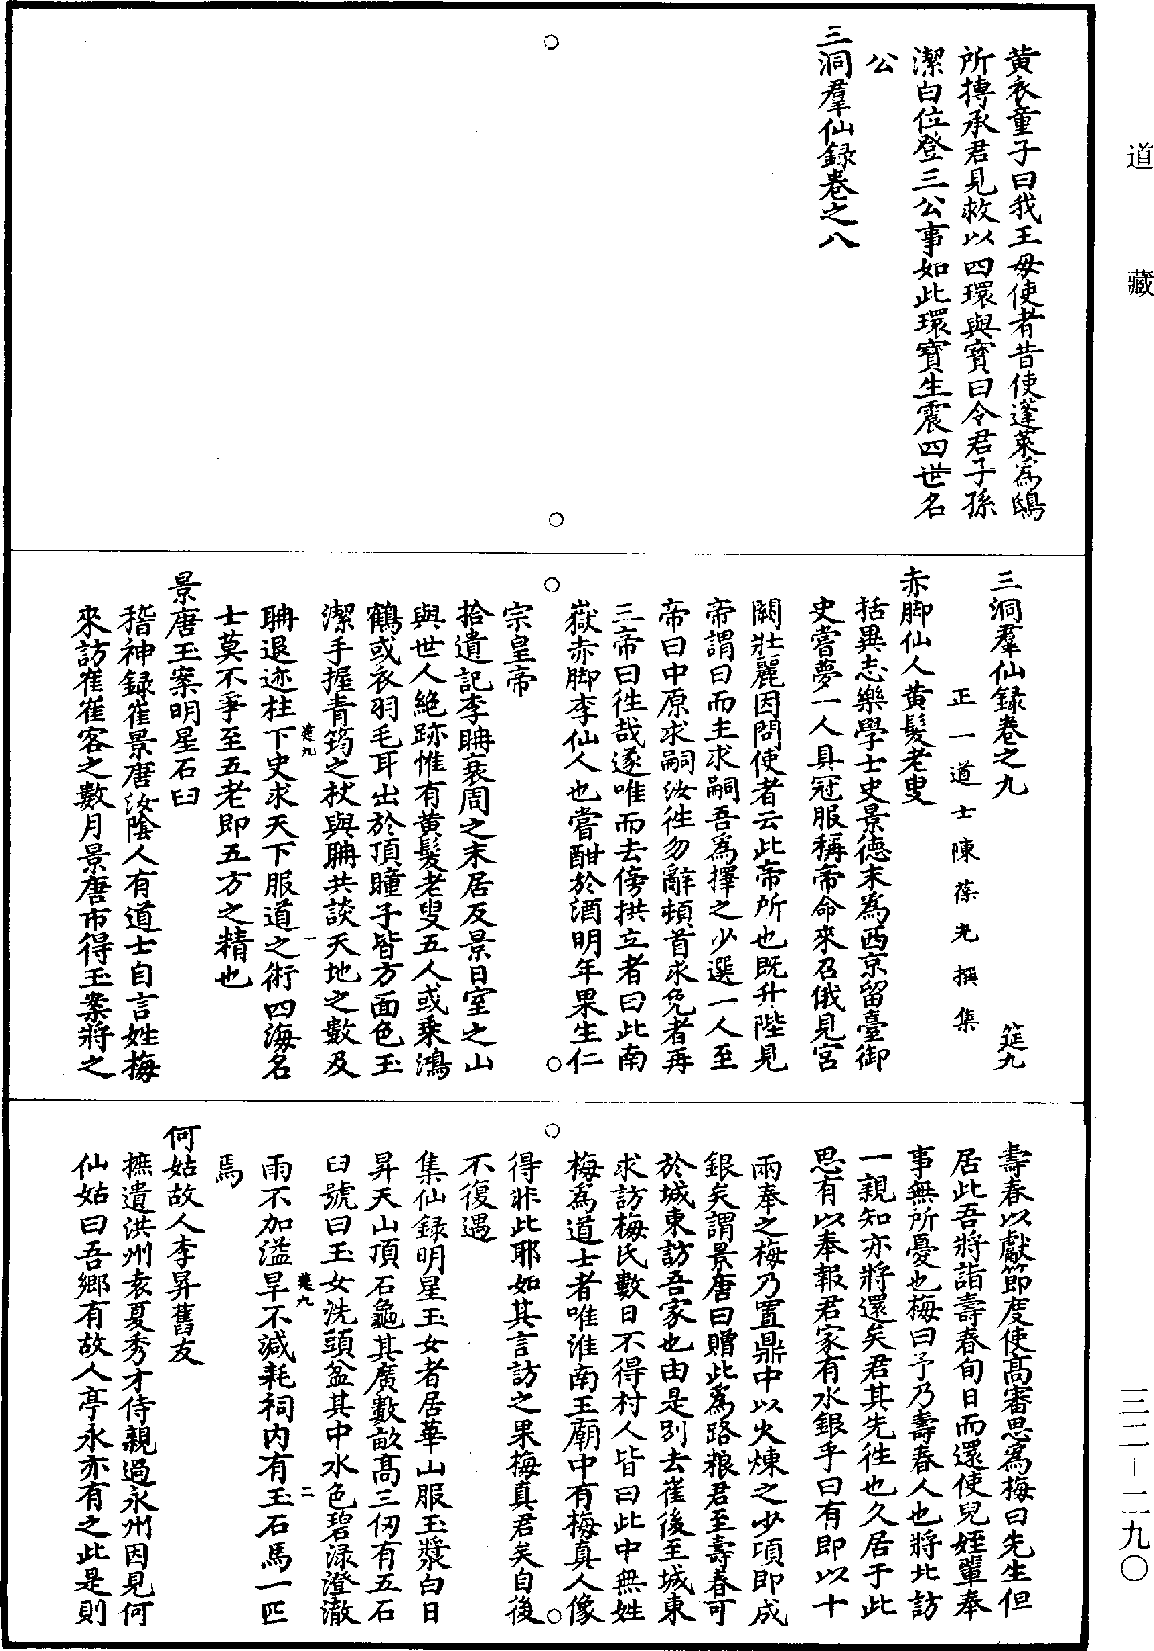 道藏
黃衣童子曰我王母使者昔使蓬萊爲鴟
所搏承君見救以四環與寶曰令君子孫
潔白位登三公事如此環寶生震四世名
公
三洞羣仙録卷之八
三洞羣仙録卷之九 筵九
正一道士陳葆光撰集
赤脚仙人黃髮老叟
括異志樂學士史景德末爲西京留臺御
史嘗夢一人具冠服稱帝命來召俄見宮
闕壯麗因問使者云此帝所也既升陛見
帝謂曰而主求嗣吾爲擇之少選一人至
帝曰中原求嗣汝徃勿辭頓首求免者再
三帝曰徃哉遂唯而去傍拱立者曰此南
嶽赤脚李仙人也嘗酣於酒明年果生仁
宗皇帝
拾遺記李耼衰周之末居反景日室之山
與世人絶跡惟有黃髮老叟五人或乘鴻
鶴或衣羽毛耳出於頂瞳子皆方面色玉
潔手握青筠之杖與耼共談天地之數及
耼退迹柱下史求天下服道之術四海名
士莫不爭至五老即五方之精也
筵九 一
景唐玉案明星石臼
稽神録崔景唐汝陰人有道士自言姓梅
來訪崔崔客之數月景唐市得玉案將之
壽春以獻節度使高審思爲梅曰先生但
居此吾將詣壽春旬日而還使兒姪輩奉
事無所憂也梅曰予乃壽春人也將北訪
一親知亦將還矣君其先徃也久居于此
思有以奉報君家有水銀乎曰有即以十
兩奉之梅乃置鼎中以火煉之少頃即成
銀矣謂景唐曰贈此爲路粮君至壽春可
於城東訪吾家也由是别去崔後至城東
求訪梅氏數日不得村人皆曰此中無姓
梅爲道士者唯淮南王廟中有梅真人像
得非此耶如其言訪之果梅真君矣自後
不復遇
集仙録明星玉女者居華山服玉漿白日
昇天山頂石龜其廣數畝高三仞有五石
臼號曰玉女洗頭盆其中水色碧渌澄澈
雨不加溢旱不減耗祠内有玉石馬一匹
焉
筵九 二
何姑故人李昇舊友
摭遺洪州袁夏秀才侍親過永州因見何
仙姑曰吾鄉有故人亭永亦有之此是則
三二-二九〇